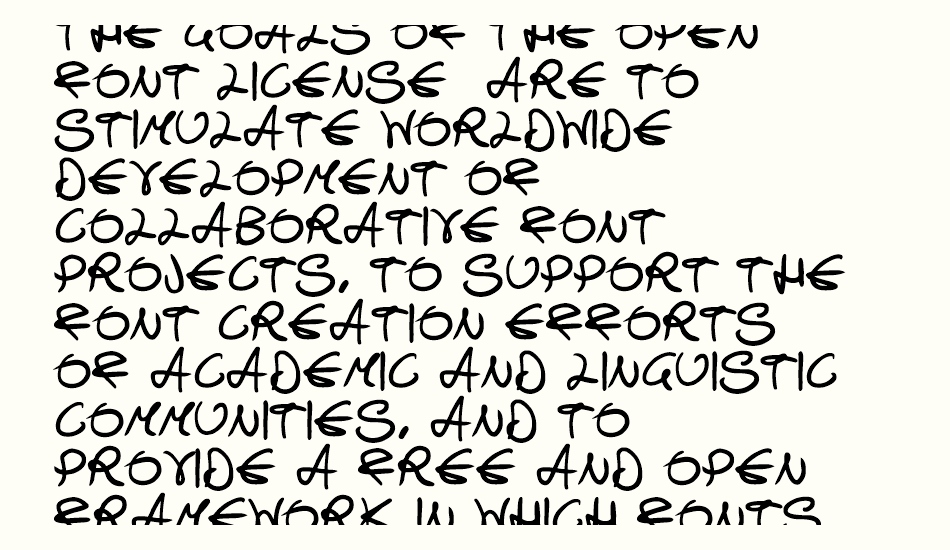 THE GOALS OF THE OPEN
FONT LICENSE ARE TO
STIMULATE WORLDWIDE
DEVELOPMENT OF
COLLABORATIVE FONT
PROJECTS, TO SUPPORT THE
FONT CREATION EFFORTS
OF ACADEMIC AND LINGUISTIC
COMMUNITIES, AND TO
PROVIDE A FREE AND OPEN
FRAMEWORK IN WHICH FONTS